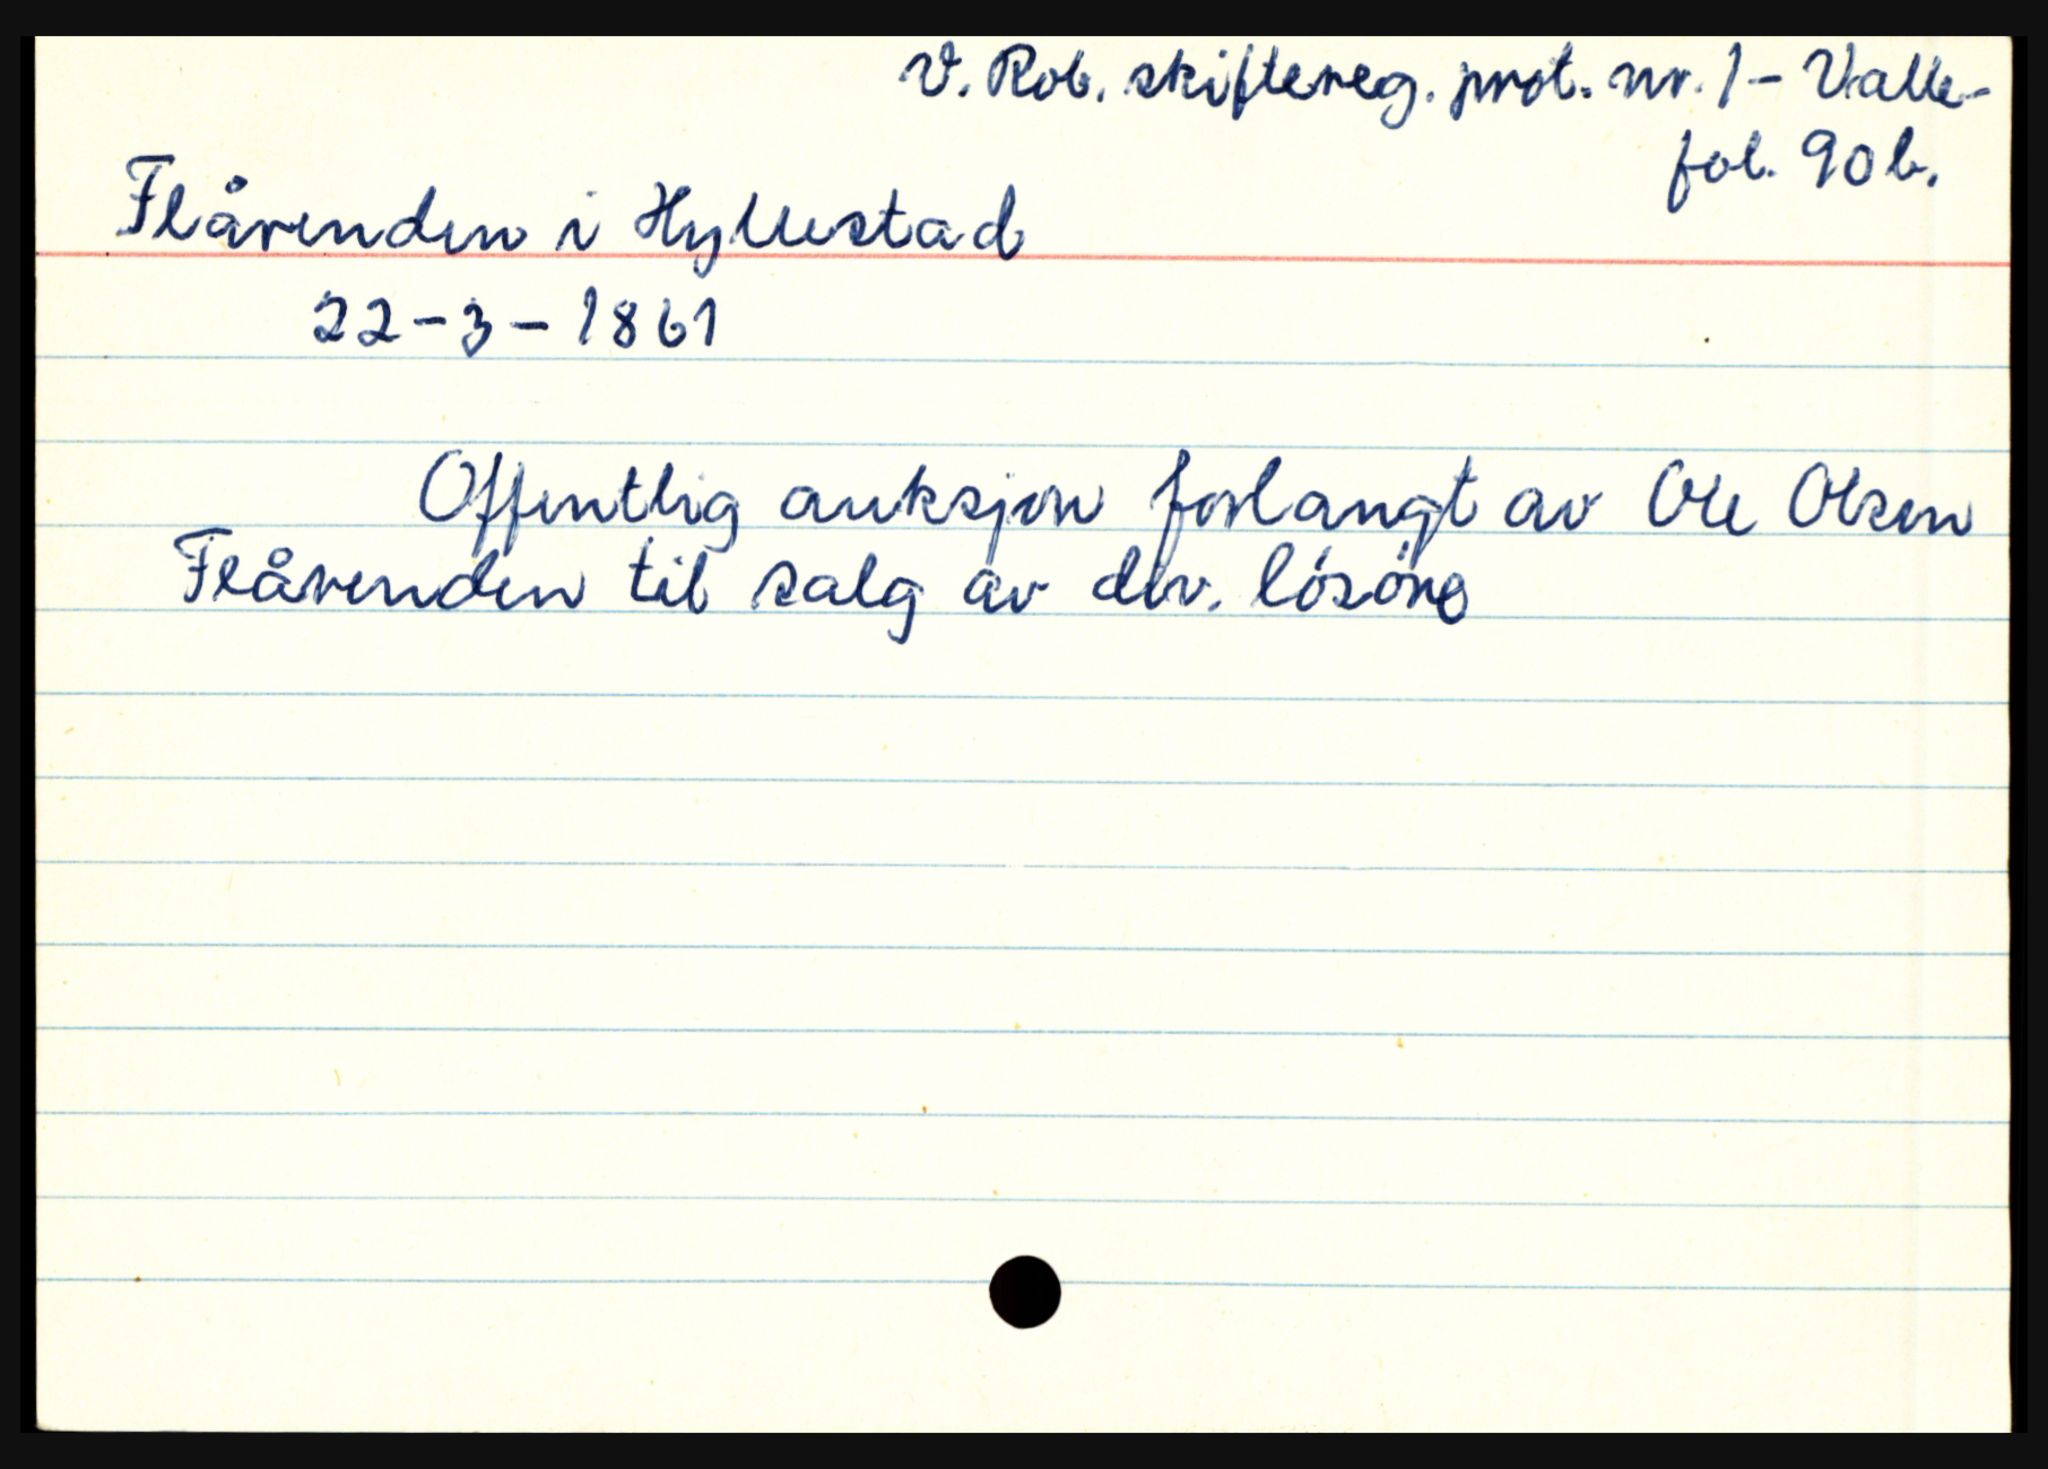 V. Rob. skiftereg. prot. nr. 1 - Valle -
fol. 90 b.
Flårenden i Hyllestad
22 - 3 - 1861
Offentlig auksjon forlangt av Ole Olsen
Flårenden til salg av div. lösöre